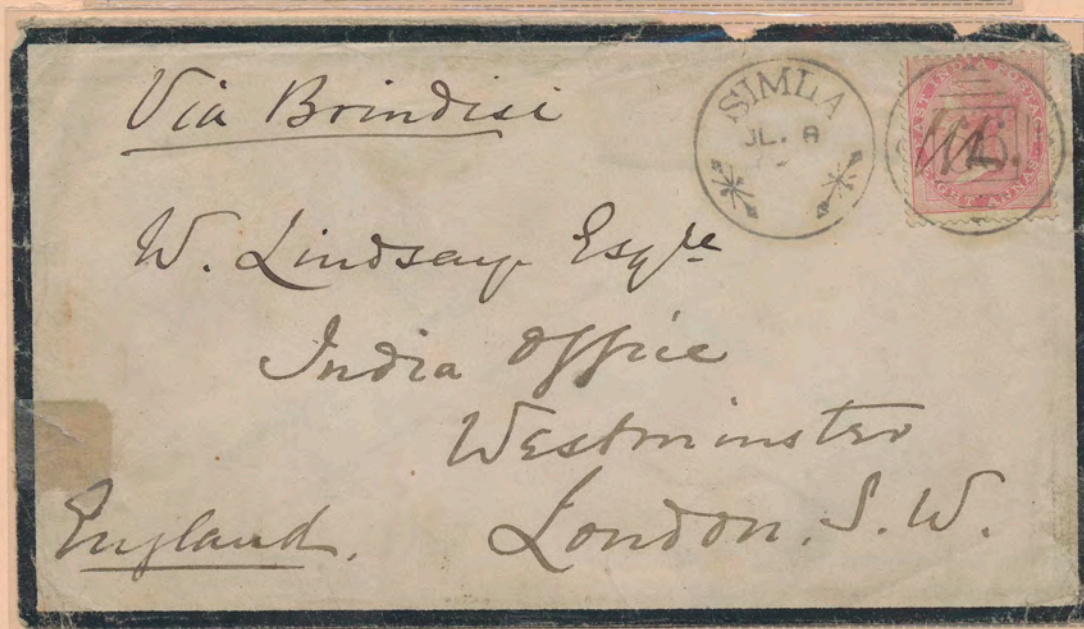 Via Brindisi
SIMLA
JL. 8
EAST INDIA POSTAGE
EIGHT ANNAS
W. Lindsay Esqre
India Office
Westminster
London, S. W.
England.